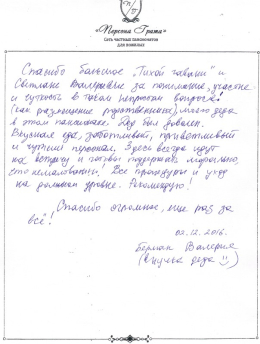 «Персона Грата»
Сеть частных пансионатов
для пожилых
Спасибо большое "Тихой гавани" и
Светлане Валерьевне за понимание, участие
и чуткость в таком непростом вопросе
(как размещение родственника), моего деда
в этом пансионате. Дед был доволен.
Вкусная еда, заботливый, приветливый
и чуткий персонал. Здесь всегда идут
на встречу и готовы поддержать морально,
что немаловажно! Все процедуры и уход
на должном уровне. Рекомендую!
Спасибо огромное, еще раз за
всё!
02.12.2016.
Герман Валерия
(внучка деда